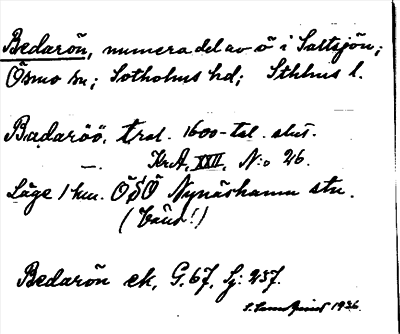 Bedarön, numera del av ö i Saltsjön;
Ösmo sn; Sotholms hd; Sthlms l.
Badaröö, trol. 1600-tal. slut.
—. Kr.A. XXII, N:o 26.
Läge 1 km. ÖSÖ Nynäshamn stn.
(Känd!)
Bedarön ek, G. 67, Sj. 257.
1936